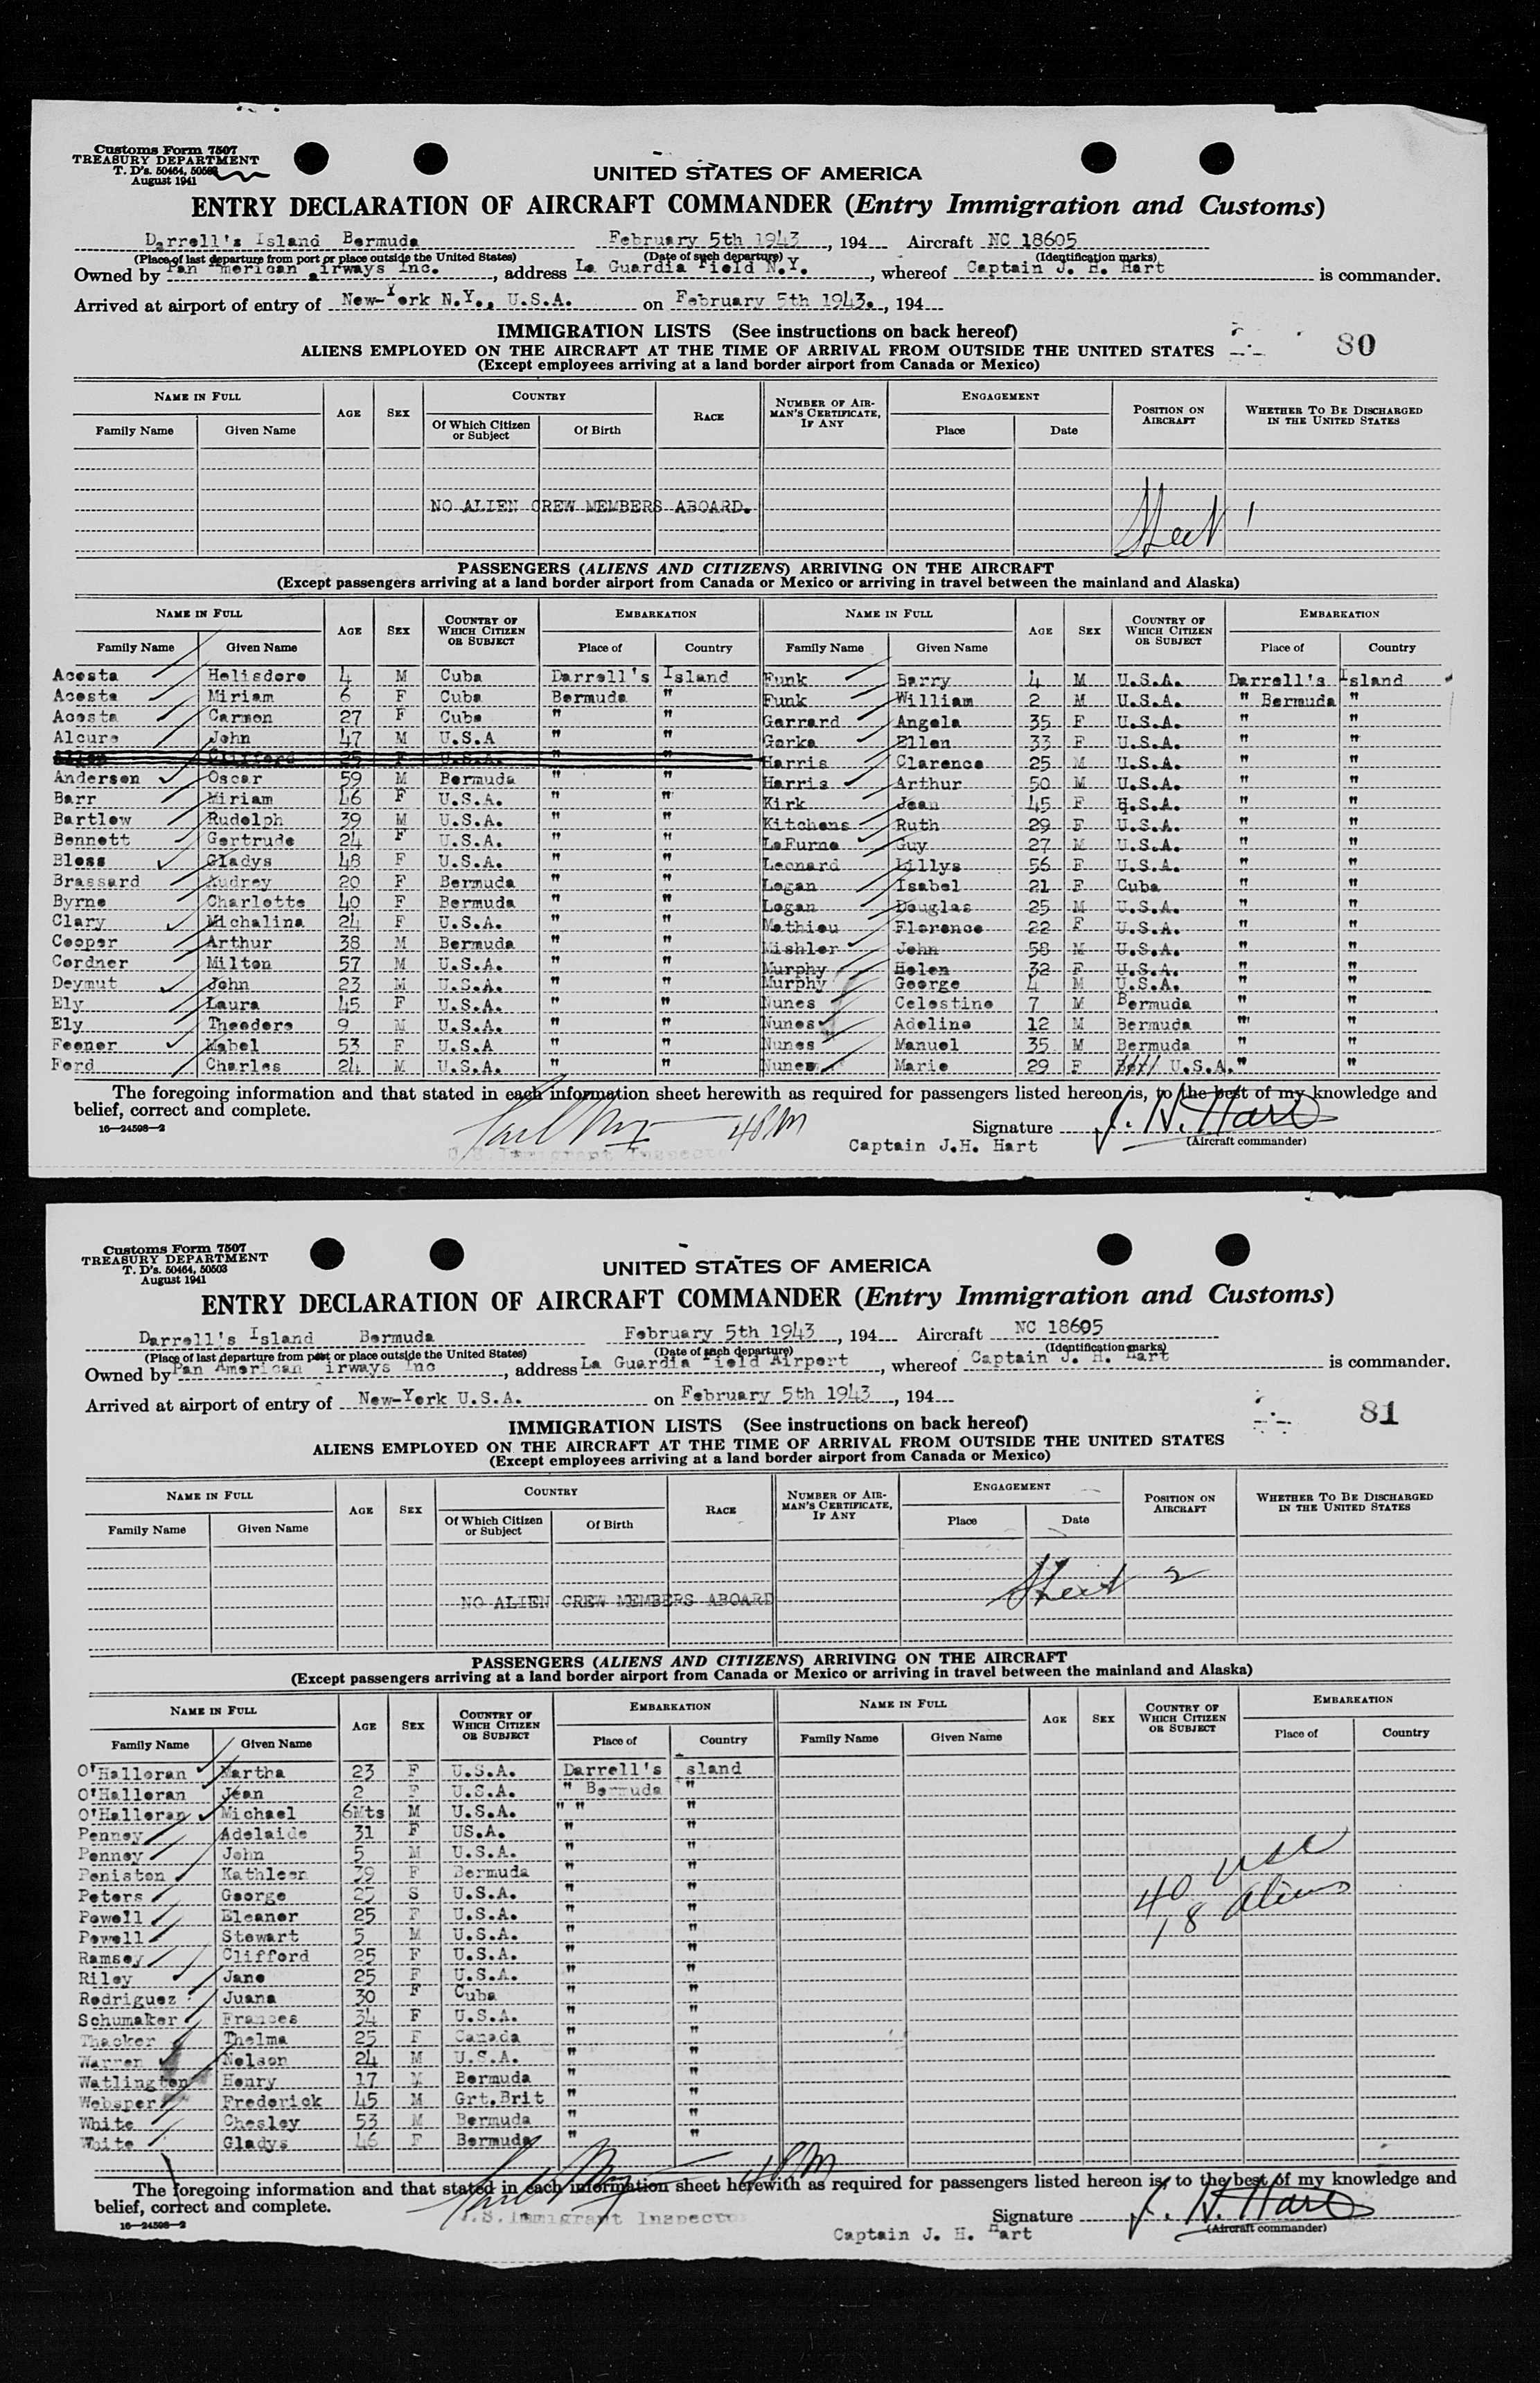 Customs Form 7507
TREASURY DEPARTMENT
T. D's. 50464, 50503
August 1941
UNITED STATES OF AMERICA
ENTRY DECLARATION OF AIRCRAFT COMMANDER (Entry Immigration and Customs)
Darrell's Island Bermuda February 5th 1943, 194 Aircraft NC 18605
(Place of last departure from port or place outside the United States) (Date of such departure) (Identification marks)
Owned by Pan American Airways Inc., address La Guardia Field N.Y., whereof Captain J. H. Hart is commander.
Arrived at airport of entry of New-York N.Y., U.S.A. on February 5th 1943., 194
IMMIGRATION LISTS (See instructions on back hereof)
80
ALIENS EMPLOYED ON THE AIRCRAFT AT THE TIME OF ARRIVAL FROM OUTSIDE THE UNITED STATES
(Except employees arriving at a land border airport from Canada or Mexico)
NAME IN FULL AGE SEX COUNTRY RACE NUMBER OF AIRMAN'S CERTIFICATE, IF ANY ENGAGEMENT POSITION ON AIRCRAFT WHETHER TO BE DISCHARGED IN THE UNITED STATES
Family Name Given Name Of Which Citizen or Subject Of Birth Place Date
NO ALIEN CREW MEMBERS ABOARD.
Sheet 1
PASSENGERS (ALIENS AND CITIZENS) ARRIVING ON THE AIRCRAFT
(Except passengers arriving at a land border airport from Canada or Mexico or arriving in travel between the mainland and Alaska)
NAME IN FULL AGE SEX COUNTRY OF WHICH CITIZEN OR SUBJECT EMBARKATION NAME IN FULL AGE SEX COUNTRY OF WHICH CITIZEN OR SUBJECT EMBARKATION
Family Name Given Name Place of Country Family Name Given Name Place of Country
Acosta Helisdore 4 M Cuba Darrell's Island Funk Barry 4 M U.S.A. Darrell's Island
Acosta Miriam 6 F Cuba Bermuda " Funk William 2 M U.S.A. " Bermuda "
Acosta Carmen 27 F Cuba " " Garrard Angela 35 F U.S.A. " "
Alcure John 47 M U.S.A " " Gorka Ellen 33 F U.S.A. " "
Allen Clifford 25 F U.S.A. " " Harris Clarence 25 M U.S.A. " "
Anderson Oscar 59 M Bermuda " " Harris Arthur 50 M U.S.A. " "
Barr Miriam 46 F U.S.A. " " Kirk Jean 45 F U.S.A. " "
Bartlow Rudolph 39 M U.S.A. " " Kitchens Ruth 29 F U.S.A. " "
Bennett Gertrude 24 F U.S.A. " " LaFurne Guy 27 M U.S.A. " "
Bless Gladys 48 F U.S.A. " " Leonard Lillys 56 F U.S.A. " "
Brassard Audrey 20 F Bermuda " " Logan Isabel 21 F Cuba " "
Byrne Charlotte 40 F Bermuda " " Logan Douglas 25 M U.S.A. " "
Clary Michalina 24 F U.S.A. " " Mathieu Florence 22 F U.S.A. " "
Cooper Arthur 38 M Bermuda " " Mishler John 58 M U.S.A. " "
Cordner Milton 57 M U.S.A. " " Murphy Helen 32 F U.S.A. " "
Deymut John 23 M U.S.A. " " Murphy George 4 M U.S.A. " "
Ely Laura 45 F U.S.A. " " Nunes Celestine 7 M Bermuda " "
Ely Theodore 9 M U.S.A. " " Nunes Adeline 12 M Bermuda " "
Feener Mabel 53 F U.S.A " " Nunes Manuel 35 M Bermuda " "
Ford Charles 24 M U.S.A. " " Nunes Marie 29 F U.S.A. " "
The foregoing information and that stated in each information sheet herewith as required for passengers listed hereon is, to the best of my knowledge and
belief, correct and complete.
16—24598—2
4PM
U.S. Immigrant Inspector
Signature J. H. Hart
(Aircraft commander)
Captain J.H. Hart
Customs Form 7507
TREASURY DEPARTMENT
T. D's. 50464, 50503
August 1941
UNITED STATES OF AMERICA
ENTRY DECLARATION OF AIRCRAFT COMMANDER (Entry Immigration and Customs)
Darrell's Island Bermuda February 5th 1943, 194 Aircraft NC 18605
(Place of last departure from port or place outside the United States) (Date of such departure) (Identification marks)
Owned by Pan American irways Inc, address La Guardia Field Airport, whereof Captain J. H. Hart is commander.
Arrived at airport of entry of New-York U.S.A. on February 5th 1943, 194
IMMIGRATION LISTS (See instructions on back hereof)
81
ALIENS EMPLOYED ON THE AIRCRAFT AT THE TIME OF ARRIVAL FROM OUTSIDE THE UNITED STATES
(Except employees arriving at a land border airport from Canada or Mexico)
NAME IN FULL AGE SEX COUNTRY RACE NUMBER OF AIRMAN'S CERTIFICATE, IF ANY ENGAGEMENT POSITION ON AIRCRAFT WHETHER TO BE DISCHARGED IN THE UNITED STATES
Family Name Given Name Of Which Citizen or Subject Of Birth Place Date
NO ALIEN CREW MEMBERS ABOARD
Sheet 2
PASSENGERS (ALIENS AND CITIZENS) ARRIVING ON THE AIRCRAFT
(Except passengers arriving at a land border airport from Canada or Mexico or arriving in travel between the mainland and Alaska)
NAME IN FULL AGE SEX COUNTRY OF WHICH CITIZEN OR SUBJECT EMBARKATION NAME IN FULL AGE SEX COUNTRY OF WHICH CITIZEN OR SUBJECT EMBARKATION
Family Name Given Name Place of Country Family Name Given Name Place of Country
O'Halloran Martha 23 F U.S.A. Darrell's Island
O'Halloran Jean 2 F U.S.A. " Bermuda "
O'Halloran Michael 6Mts M U.S.A. " " "
Penney Adelaide 31 F US.A. " "
Penney John 5 M U.S.A. " "
Peniston Kathleen 39 F Bermuda " "
Peters George 25 S U.S.A. " "
Powell Eleanor 25 F U.S.A. " "
Powell Stewart 5 M U.S.A. " "
Ramsey Clifford 25 F U.S.A. " "
Riley Jane 25 F U.S.A. " "
Rodriguez Juana 30 F Cuba " "
Schumaker Frances 34 F U.S.A. " "
Thacker Thelma 25 F Canada " "
Warren Nelson 24 M U.S.A. " "
Watlington Henry 17 M Bermuda " "
Websper Frederick 45 M Grt.Brit " "
White Chesley 53 M Bermuda " "
White Gladys 46 F Bermuda " "
40 USC
18 aliens
The foregoing information and that stated in each information sheet herewith as required for passengers listed hereon is, to the best of my knowledge and
belief, correct and complete.
16—24598—2
4PM
U.S. Immigrant Inspector
Signature J. H. Hart
(Aircraft commander)
Captain J. H. Hart